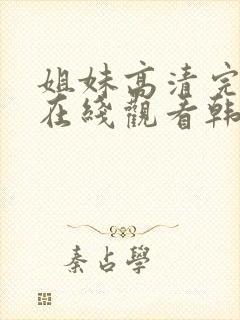 姐妹高清完
在綫觀看韩
秦占學